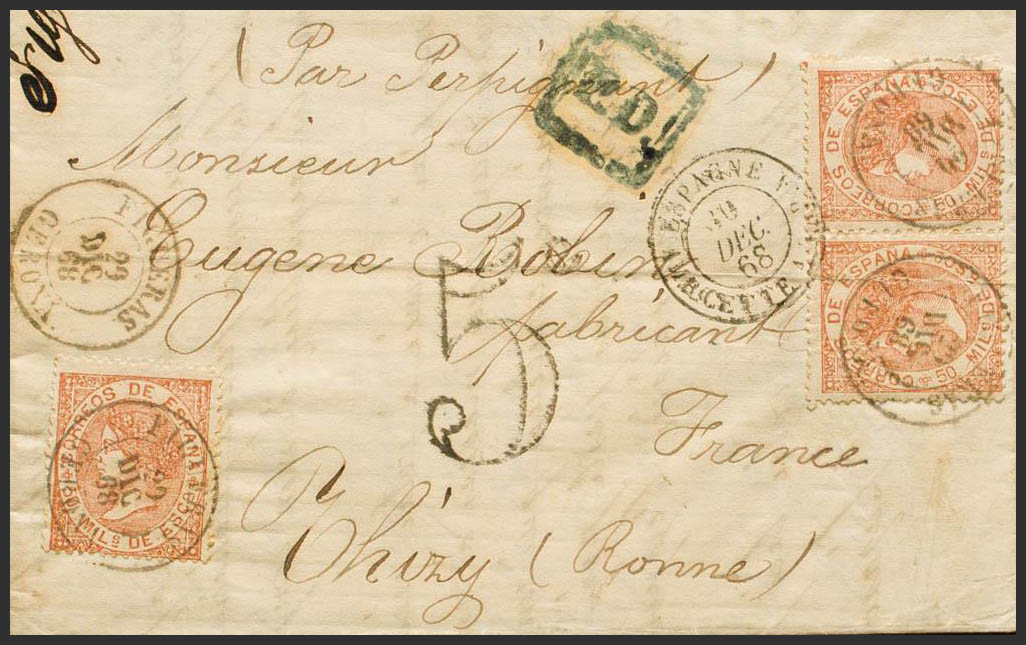 (Par Perpignant)
P.D.
Monsieur
Eugène Robin
fabricant
France
Thizy (Ronne)
5
FIGUERAS
29
DIC
68
GERONA
ESPAGNE
30
DEC.
68
CETTE
CORREOS DE ESPAÑA
50 MILS DE ESCO
29
DIC
68
CORREOS DE ESPAÑA
50 MILS DE ESCO
CORREOS DE ESPAÑA
50 MILS DE ESCO